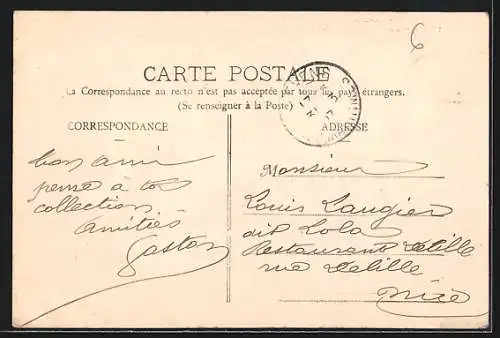 6
CARTE POSTALE
La Correspondance au recto n'est pas acceptée par tous les pays étrangers.
(Se renseigner à la Poste)
CORRESPONDANCE
ADRESSE
bon ami
pense à ta
collection
amitiés
Gaston
Monsieur
Louis Laugier
dit Lola
Restaurant Delille
rue Delille
Nice